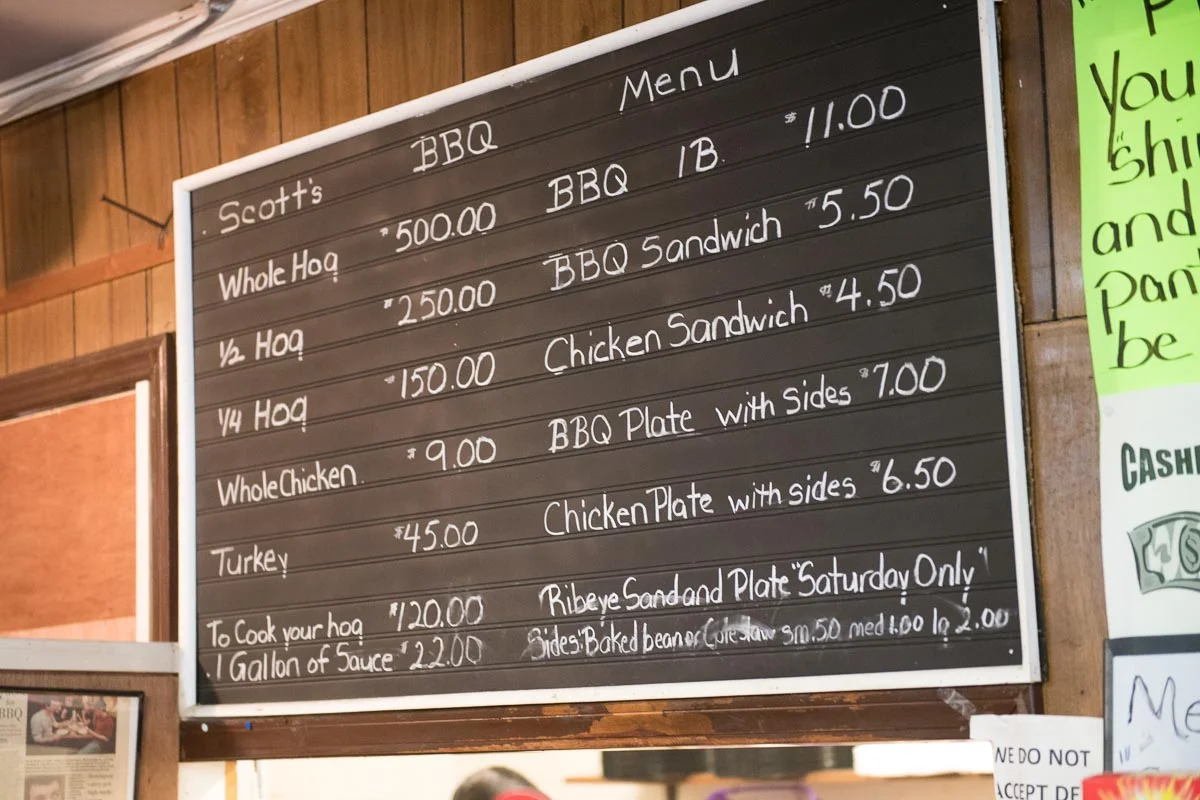 Scott's BBQ Menu
Whole Hog $500.00
½ Hog $250.00
¼ Hog $150.00
Whole Chicken $9.00
Turkey $45.00
To Cook your hog $120.00
1 Gallon of Sauce $22.00
BBQ 1B. $11.00
BBQ Sandwich $5.50
Chicken Sandwich $4.50
BBQ Plate with Sides $7.00
Chicken Plate with sides $6.50
Ribeye Sand and Plate "Saturday Only"
Sides: Baked bean or Coleslaw sm .50 med 1.00 lg 2.00
You
and
be
WE DO NOT
BBQ